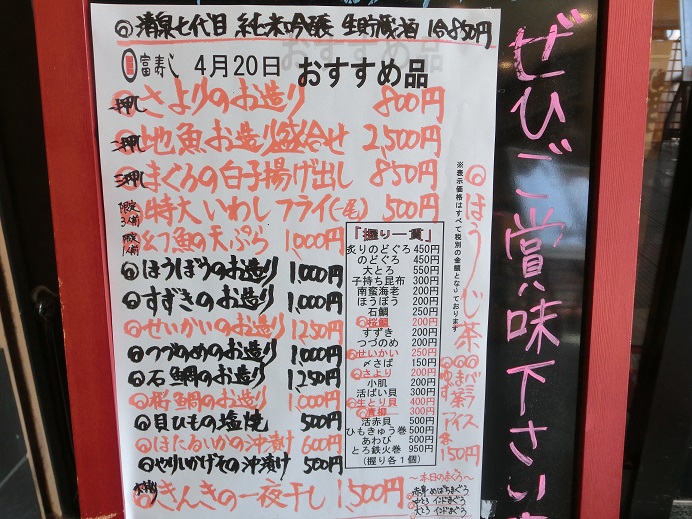 清泉七代目 純米吟醸 生貯蔵酒 1合850円
富寿し 4月20日 おすすめ品
一押し さよりのお造り 800円
二押し 地魚お造り盛合せ 2,500円
三押し まぐろの白子揚げ出し 850円
限定3人前 特大いわしフライ(一尾) 500円
限定1人前 幻魚の天ぷら 1,000円
ほうぼうのお造り 1,000円
すずきのお造り 1,000円
せいかいのお造り 1250円
つづのめのお造り 1,000円
石鯛のお造り 1,250円
桜鯛のお造り 1,000円
貝ひもの塩焼 500円
ほたるいかの沖漬け 600円
やりいかげその沖漬け 500円
きんきの一夜干し 1,500円
「握り一貫」
炙りのどぐろ 450円
のどぐろ 450円
大とろ 550円
子持ち昆布 300円
南蛮海老 200円
ほうぼう 200円
石鯛 200円
桜鯛 200円
すずき 200円
つづのめ 200円
せいかい 250円
〆さば 150円
さより 200円
小肌 200円
活ばい貝 300円
生とり貝 400円
青柳 300円
活赤貝 500円
ひもきゅう巻 500円
あわび 500円
とろ鉄火巻 950円
(握り各1個)
〜本日のまぐろ〜
※表示価格はすべて税別の金額となっております
ほうじ茶
バニラ
アイス
各150円
ぜひご賞味下さい